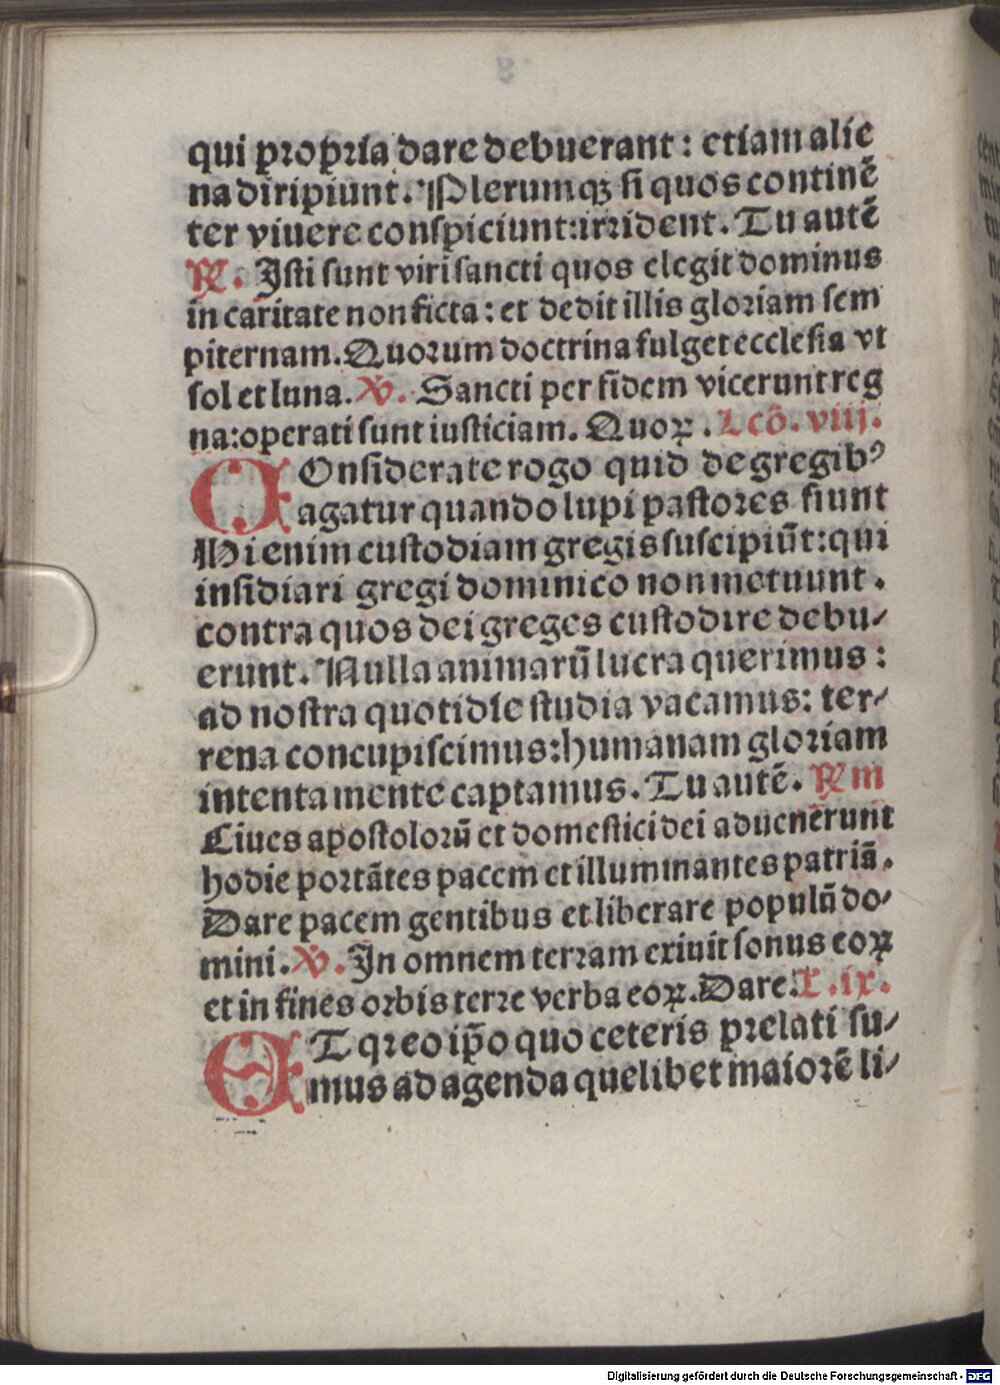 qui propria dare debuerant: etiam alie
na diripiunt. Plerumqꝫ ſi quos continē
ter viuere conſpiciunt:irrident. Tu autē
℟. Iſti ſunt viri ſancti quos elegit dominus
in caritate non ficta: et dedit illis gloriam ſem
piternam. Quorum doctrina fulget eccleſia vt
ſol et luna. ℣. Sancti per fidem vicerunt reg
na:operati ſunt iuſticiam. Quoꝝ. Lcō. viij.
COnſiderate rogo quid de gregibꝰ
agatur quando lupi paſtores fiunt
Hi enim cuſtodiam gregis ſuſcipiūt:qui
inſidiari gregi dominico non metuunt.
contra quos dei greges cuſtodire debu⸗
erunt. Nulla animarū lucra querimus:
ad noſtra quotidie ſtudia vacamus: ter⸗
rena concupiſcimus:humanam gloriam
intenta mente captamus. Tu autē. ℟m
Ciues apoſtolorū et domeſtici dei aduenerunt
hodie portātes pacem et illuminantes patriā.
Dare pacem gentibus et liberare populū do⸗
mini. ℣. In omnem terram exiuit ſonus eoꝝ
et in fines orbis terre verba eoꝝ. Dare. L. ix.
ET qreo ip̄o quo ceteris prelati ſu⸗
mus ad agenda quelibet maiorē li⸗
Digitalisierung gefördert durch die Deutsche Forschungsgemeinschaft - DFG